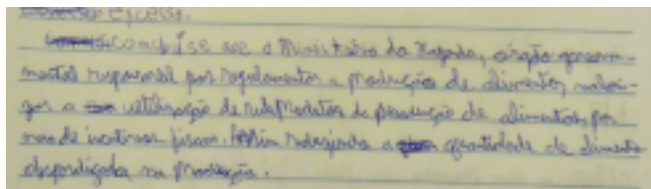 excesso.
se que o Ministério da Fazenda, órgão governa-
mental responsável por regulamentar a produção de alimentos,
a utilização de subprodutos da produção de alimentos, por
meio de incentivos fiscais. Assim reduzindo a quantidade de alimento
na produção.